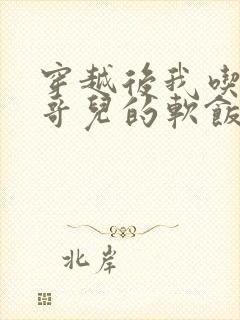 穿越後我喫
哥兒的軟飯
北岸